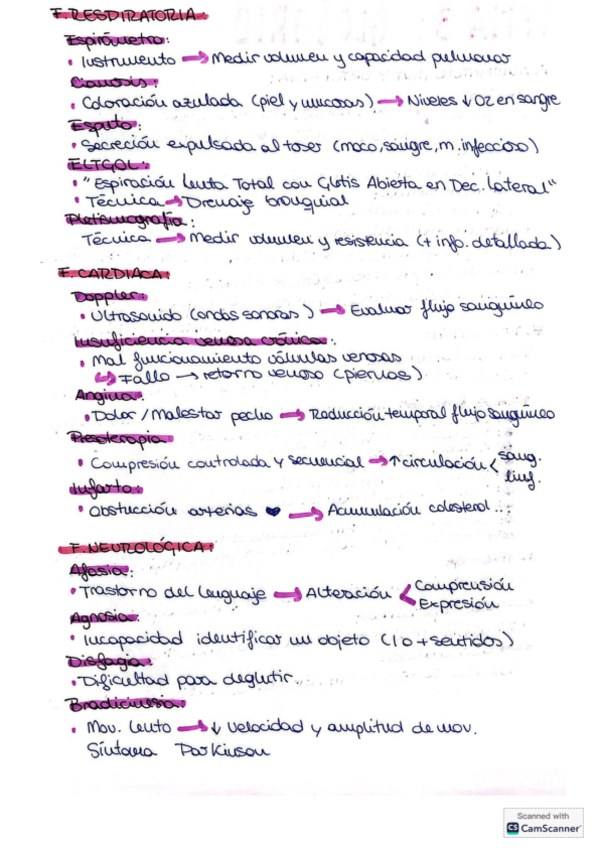 F. RESPIRATORIA:
Espirómetro:
• Instrumento → Medir volumen y capacidad pulmonar
Cianosis:
• Coloración azulada (piel y mucosas) → Niveles ↓ O2 en sangre
Esputo:
• Secreción expulsada al toser (moco, sangre, m. infeccioso)
ELTGOL:
• "Espiración Lenta Total con Glotis Abierta en Dec. Lateral"
• Técnica → Drenaje bronquial
Pletismografía:
Técnica → Medir volumen y resistencia (+ info. detallada)
F. CARDIACA:
Doppler:
• Ultrasonido (ondas sonoras) → Evaluar flujo sanguíneo
Insuficiencia venosa crónica:
• Mal funcionamiento válvulas venosas
↳ Fallo → retorno venoso (piernas)
Angina:
• Dolor / Malestar pecho → Reducción temporal flujo sanguíneo
Presoterapia
• Compresión controlada y secuencial → ↑ circulación < sang.
linf.
Infarto:
• Obstucción arterias ♥ → Acumulación colesterol...
F. NEUROLÓGICA:
Afasia:
• Trastorno del lenguaje → Alteración < Comprensión
Expresión
Agnosia:
• Incapacidad identificar un objeto (1 o + sentidos)
Disfagia:
• Dificultad para deglutir.
Bradicinesia:
• Mov. lento → ↓ velocidad y amplitud de mov.
Síntoma Parkinson
Scanned with
CS CamScanner